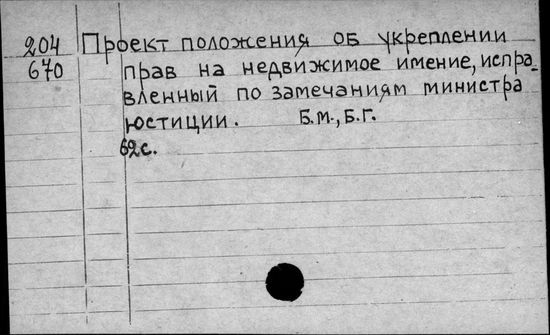 204 Проект положения об укреплении
670 прав на недвижимое имение, испра-
вленный по замечаниям министра
юстиции. Б.м., Б.г.
62с.